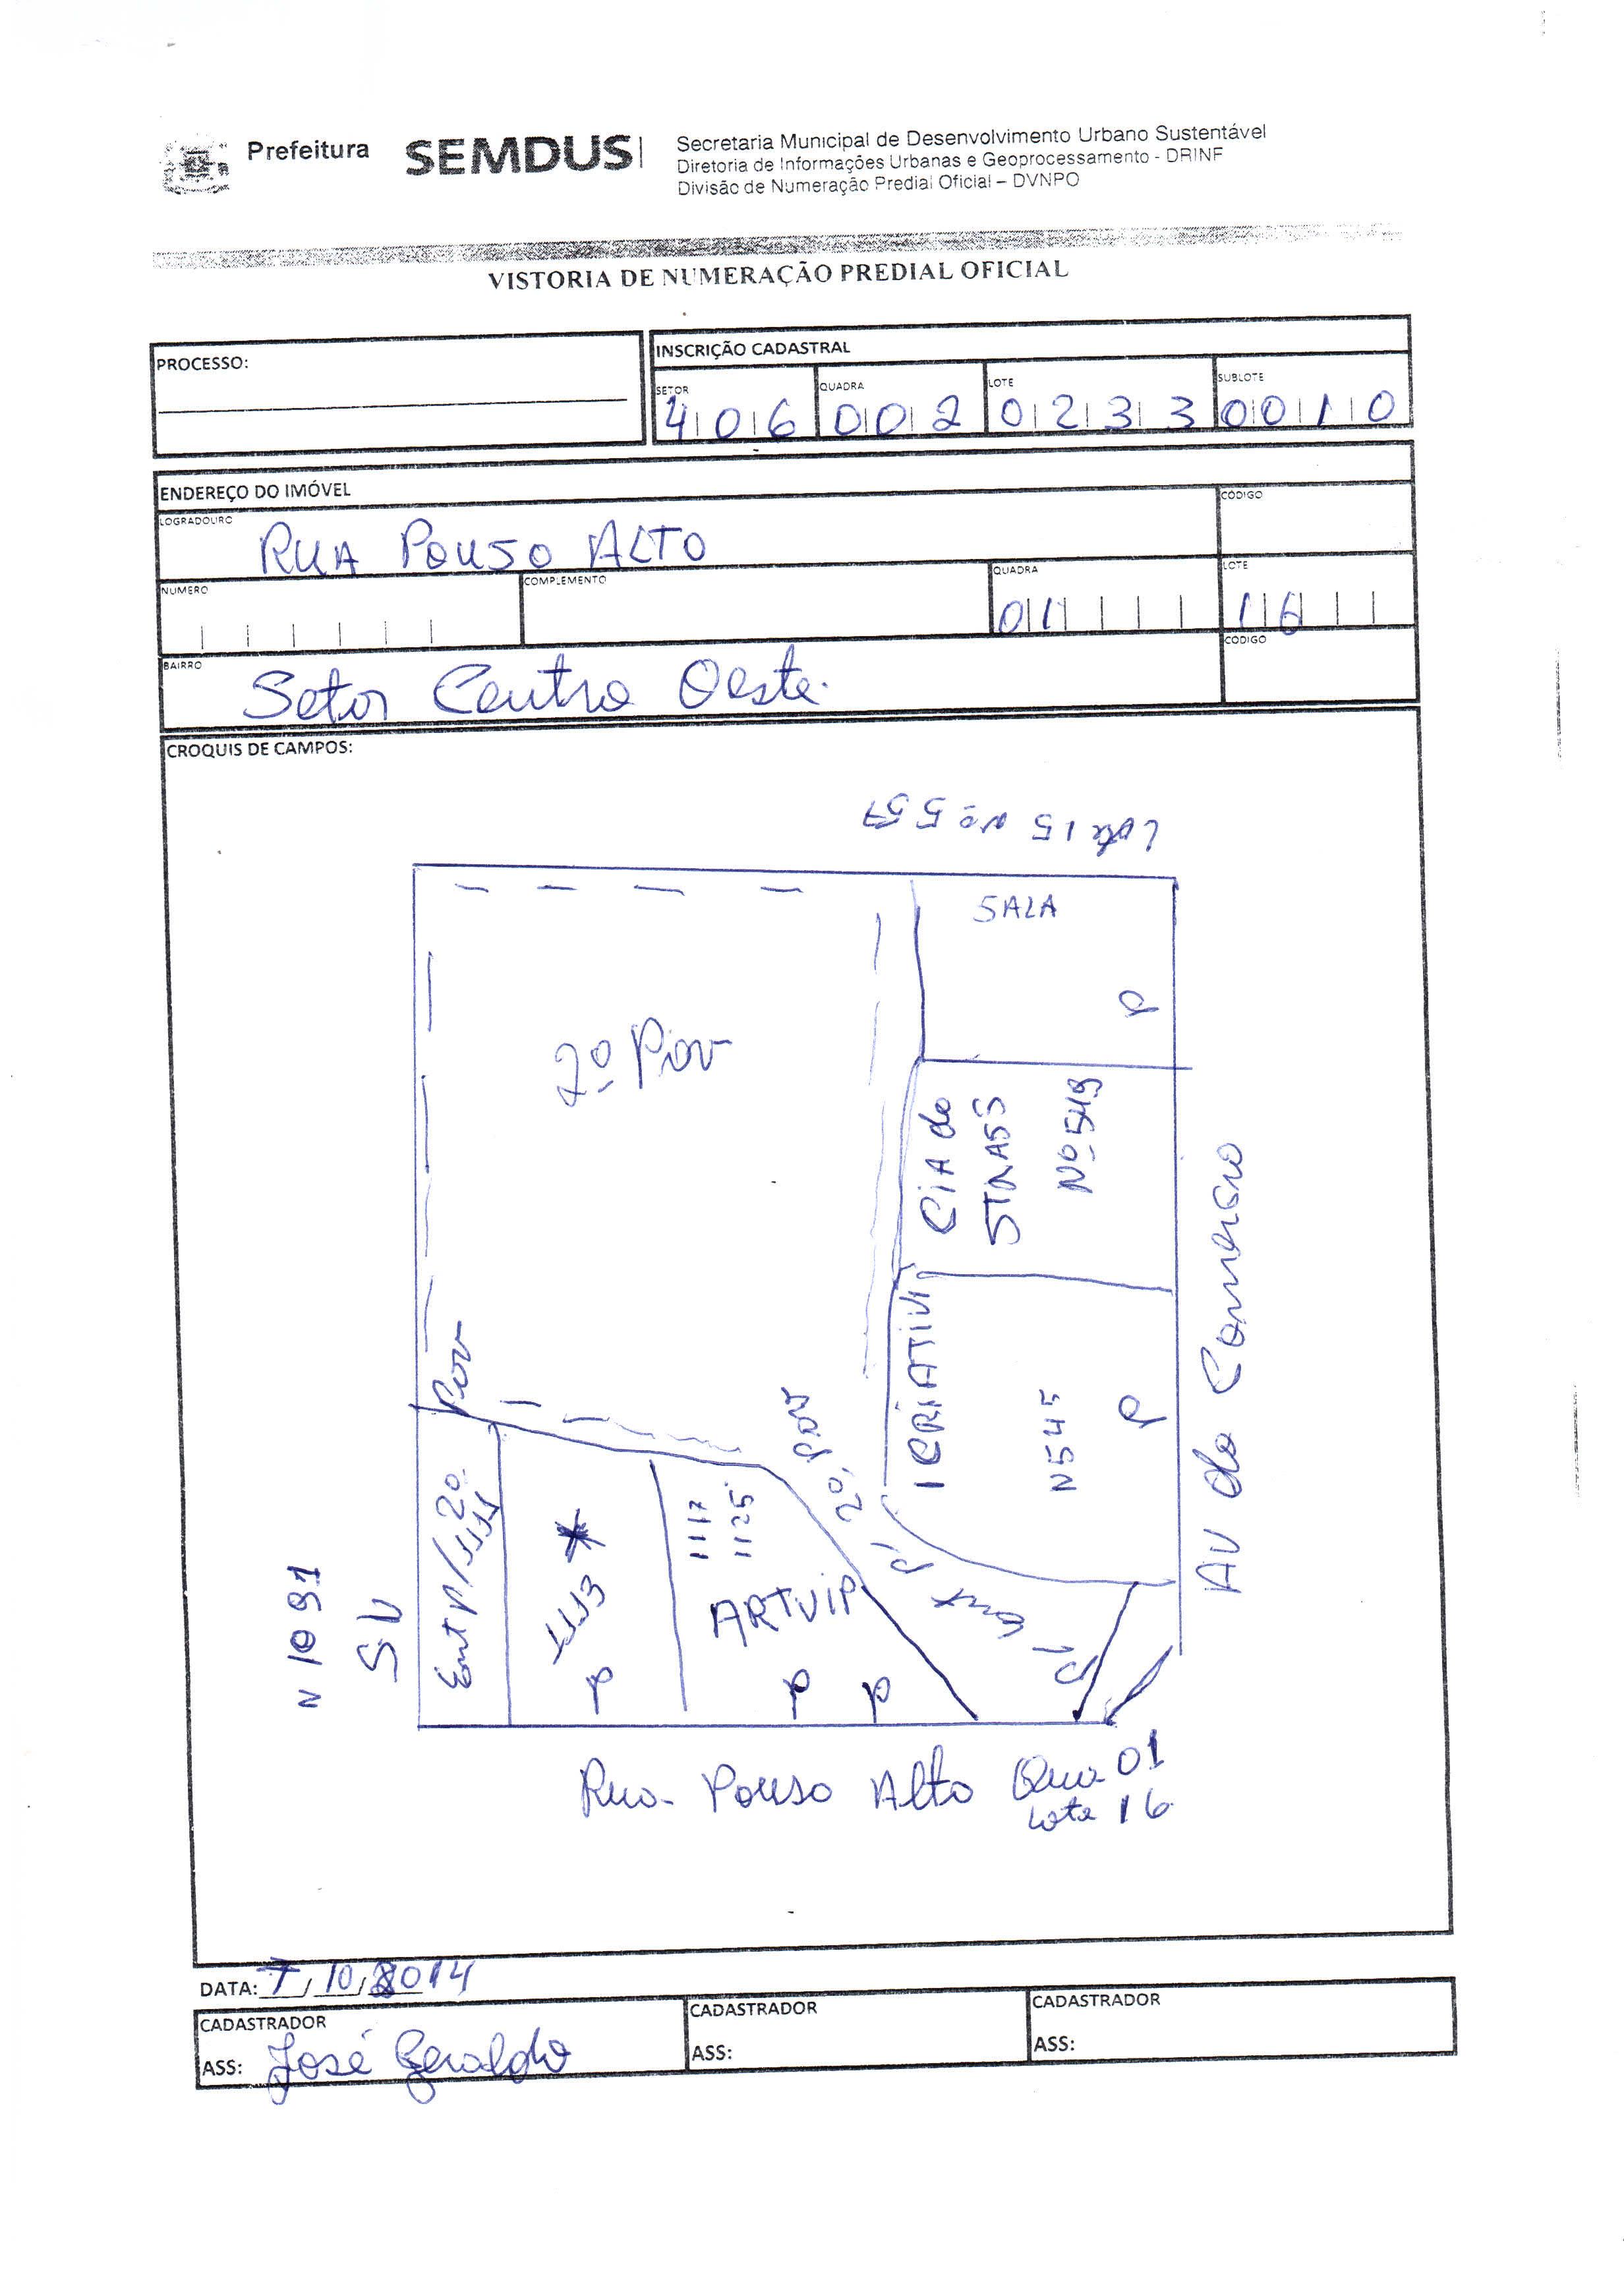 Prefeitura SEMDUS
Secretaria Municipal de Desenvolvimento Urbano Sustentável
Diretoria de Informações Urbanas e Geoprocessamento - DRINF
Divisão de Numeração Predial Oficial – DVNPO
VISTORIA DE NUMERAÇÃO PREDIAL OFICIAL
PROCESSO:
INSCRIÇÃO CADASTRAL
SETOR QUADRA LOTE SUBLOTE
406 002 0233 0010
ENDEREÇO DO IMÓVEL
LOGRADOURO CÓDIGO
RUA POUSO ALTO
NUMERO COMPLEMENTO QUADRA LOTE
01 16
BAIRRO CÓDIGO
Setor Centro Oeste.
CROQUIS DE CAMPOS:
Lote 15 Nº 557
SALA
P
2º Pov
CIA do
STRASS
Nº 549
Pov
CRIATIVI
N 545
P
AV do Comercio
2º Pov
P/
Ent P/ 2º
1111
1113
P
1117
1125
ARTVIP
P P
N 1091
SV
Rua Pouso Alto Qua 01
Lote 16
DATA: 7/10/2014
CADASTRADOR
ASS: José Geraldo
CADASTRADOR
ASS:
CADASTRADOR
ASS: